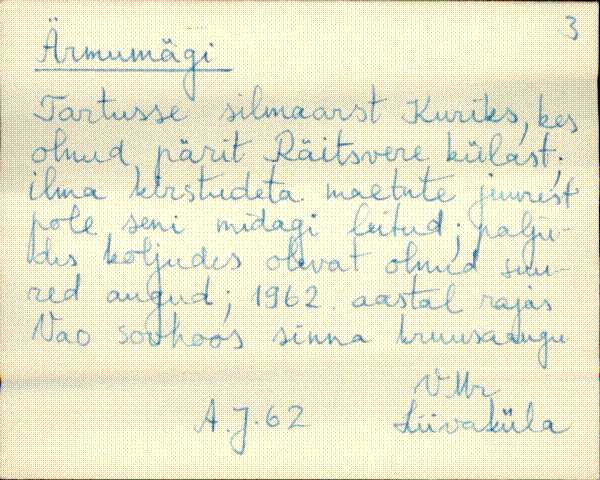 3
Ärmumägi
Tartusse silmaarst Kuriks, kes
olnud pärit Räitsvere külast;
ilma kirstudeta maetute juurest
pole seni midagi leitud; palju-
des koljudes olevat olnud suu-
red augud; 1962. aastal rajas
Vao sovhoos sinna kruusaaugu
V.Mr
A.J.62 Liivaküla